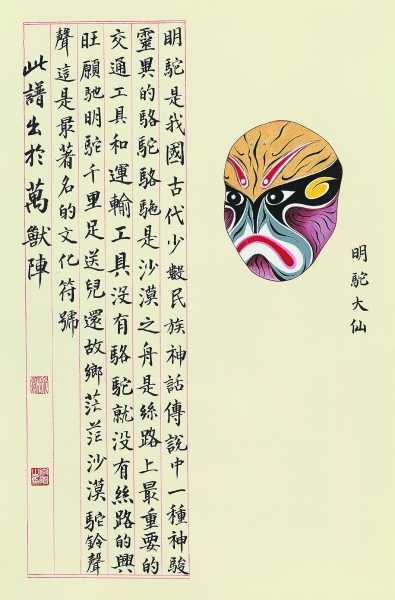 明駝是我國古代少數民族神話傳說中一種神駿
靈異的駱駝駱駝是沙漠之舟是絲路上最重要的
交通工具和運輸工具没有駱駝就没有絲路的興
旺願馳明駝千里足送兒還故鄉茫茫沙漠駝鈴聲
聲這是最著名的文化符號
此譜出於萬獸陣
明駝大仙